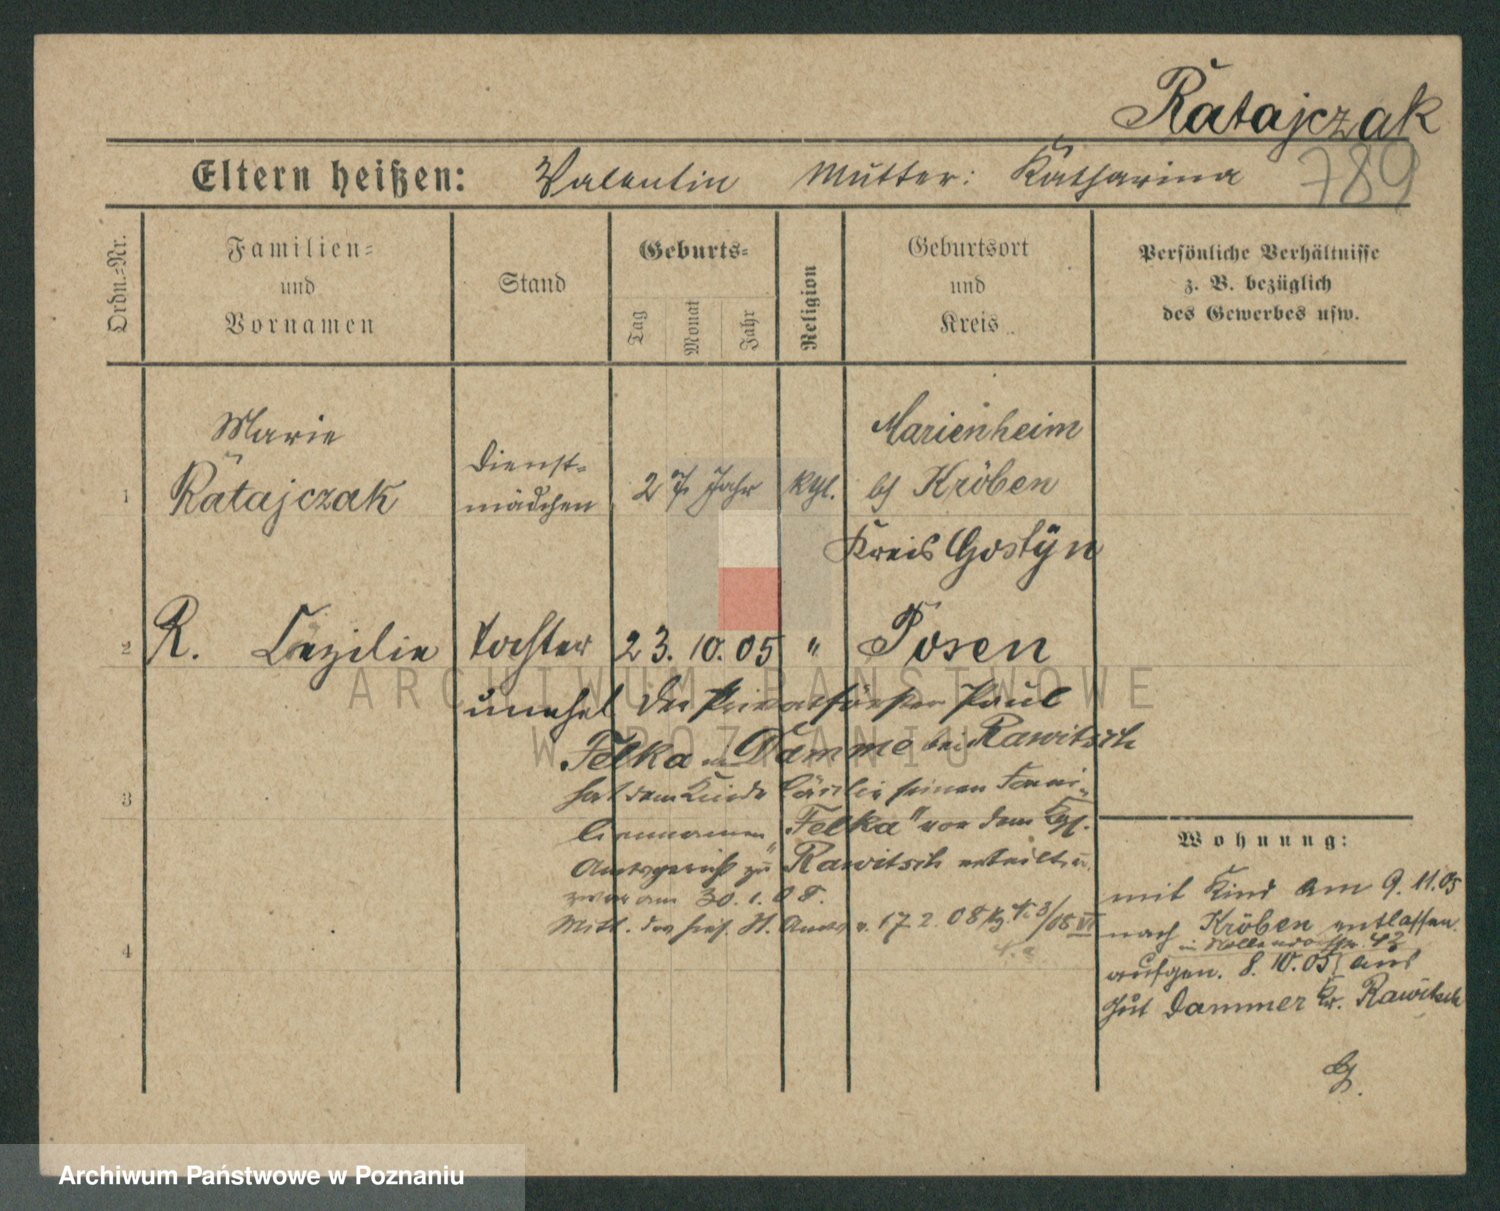 Ratajczak
789
Eltern heißen: Valentin Mutter: Katharina
Ordn.-Nr.
Familien-
und
Vornamen
Stand
Geburts-
Tag
Monat
Jahr
Religion
Geburtsort
und
Kreis
Persönliche Verhältnisse
z. B. bezüglich
des Gewerbes usw.
1
Marie
Ratajczak
Dienst-
mädchen
27 Jahr
kath.
Marienheim
bei Kröben
Kreis Gostyn
2
R. Cezilie
Tochter
unehel
23. 10. 05
"
Posen
Der Privatförster Paul
Felka in Damme bei Rawitsch
hat dem Kinde Cäcilie seinen Fami-
liennamen „Felka" vor dem Kgl.
Amtsgericht zu Rawitsch erteilt u.
zwar am 30. 1. 08.
Mitt. des hies. St. Amts v. 17. 2. 08
3
4
Wohnung:
mit Kind am 9. 11. 05
nach Kröben entlassen.
in
aufgen. 8. 10. 05 aus
Gut Dammer Kr. Rawitsch
ARCHIWUM PAŃSTWOWE
W POZNANIU
Archiwum Państwowe w Poznaniu